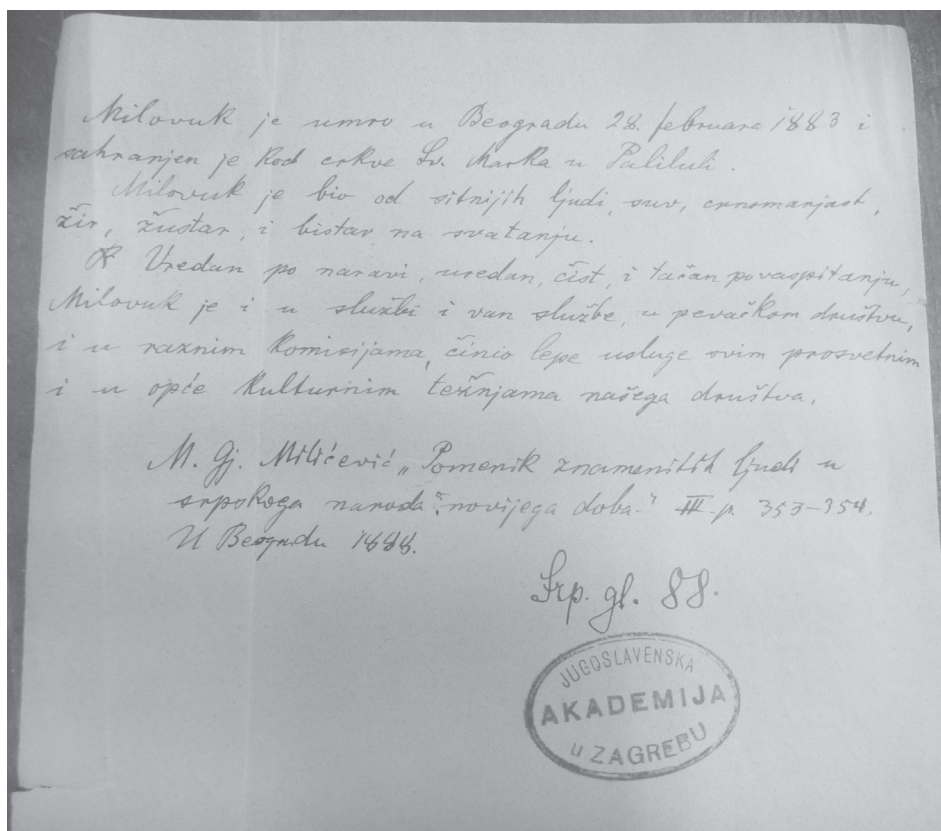 Milovuk je umro u Beogradu 28. februara 1883 i
sahranjen je kod crkve Sv. Marka u Paliluli.
Milovuk je bio od sitnijih ljudi, suv, crnomanjast,
žir, žustar, i bistar na svatanju.
Vredan po naravi, uredan, čist, i tačan po vaspitanju,
Milovuk je i u službi i van službe, u pevačkom društvu,
i u raznim komisijama, činio lepe usluge svim prosvetnim
i u opće kulturnim težnjama našega društva.
M. Gj. Milićević „Pomenik znamenitih ljudi u
srpskoga naroda novijega doba" III p. 353–354.
U Beogradu 1888.
Srp. gl. 88.
JUGOSLAVENSKA
AKADEMIJA
u ZAGREBU